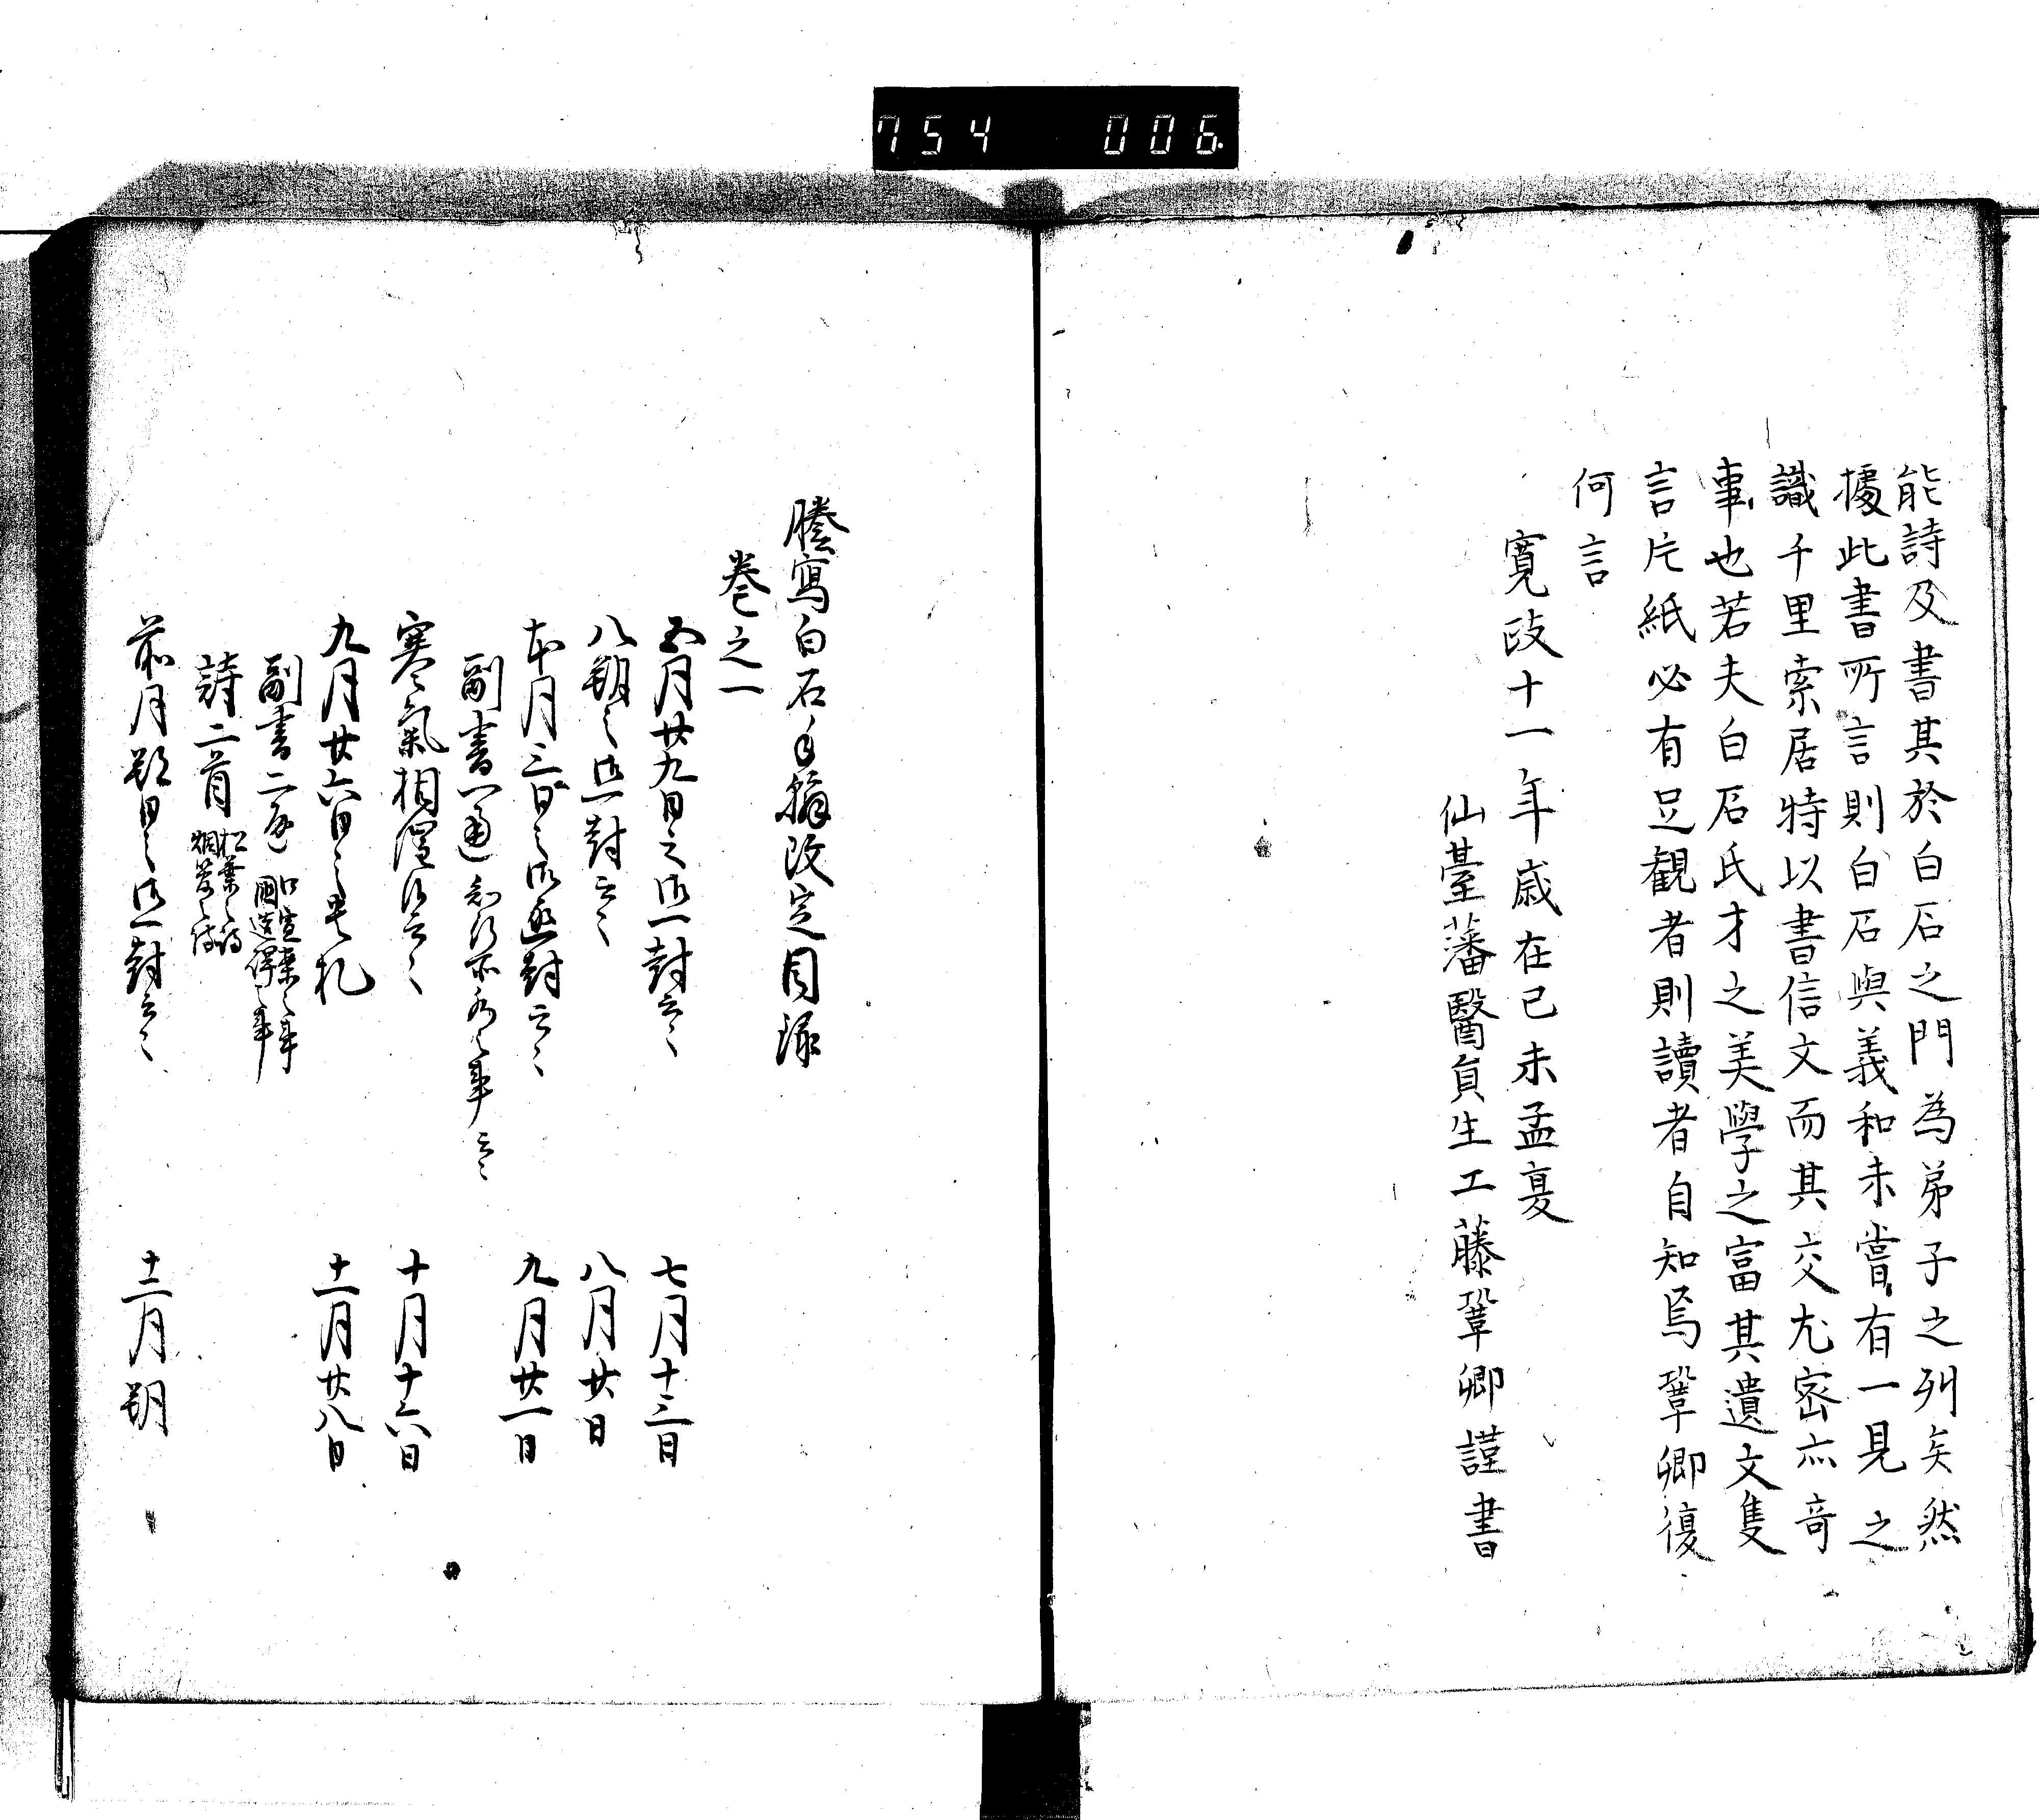 754 006.
能詩及書其於白石之門為弟子之列矣然
據此書所言則白石與義和未嘗有一見之
識千里索居特以書信文而其交尤密亦奇
事也若夫白石氏才之美學之富其遺文隻
言片紙必有足観者則讀者自知焉鞏卿復
何言
寛政十一年歳在己未孟夏
仙臺藩醫員生工藤鞏卿謹書
謄寫白石手翰改定目录
巻之一
五月廿九日之御一封云〻 七月十三日
八朔之御一封云〻 八月廿日
本月三日之御一封云〻 九月廿一日
副書一通 之事云〻
寒氣相 云〻 十月十六日
九月廿六日之 札 十一月廿八日
副書二通 口宣案之事
國造 之事
詩二首 松葉之詩
烟草之詩
前月朔日之御一封云〻 十二月朔